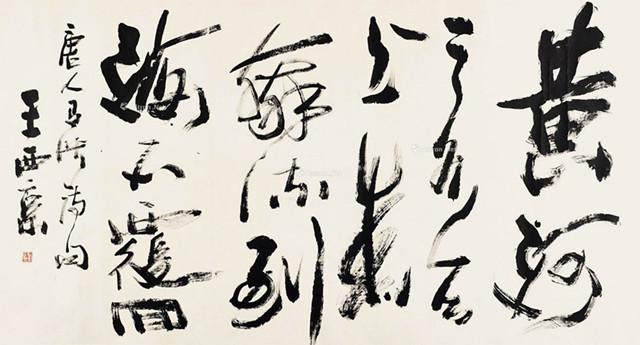 黄河
之水天
上來
奔流到
海不覆回
唐人詩句
王西京